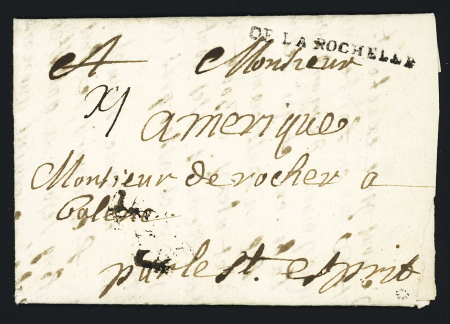 DE LA ROCHELLE
A Monsieur
amerique
Monsieur de rocher a
par le st. esprit